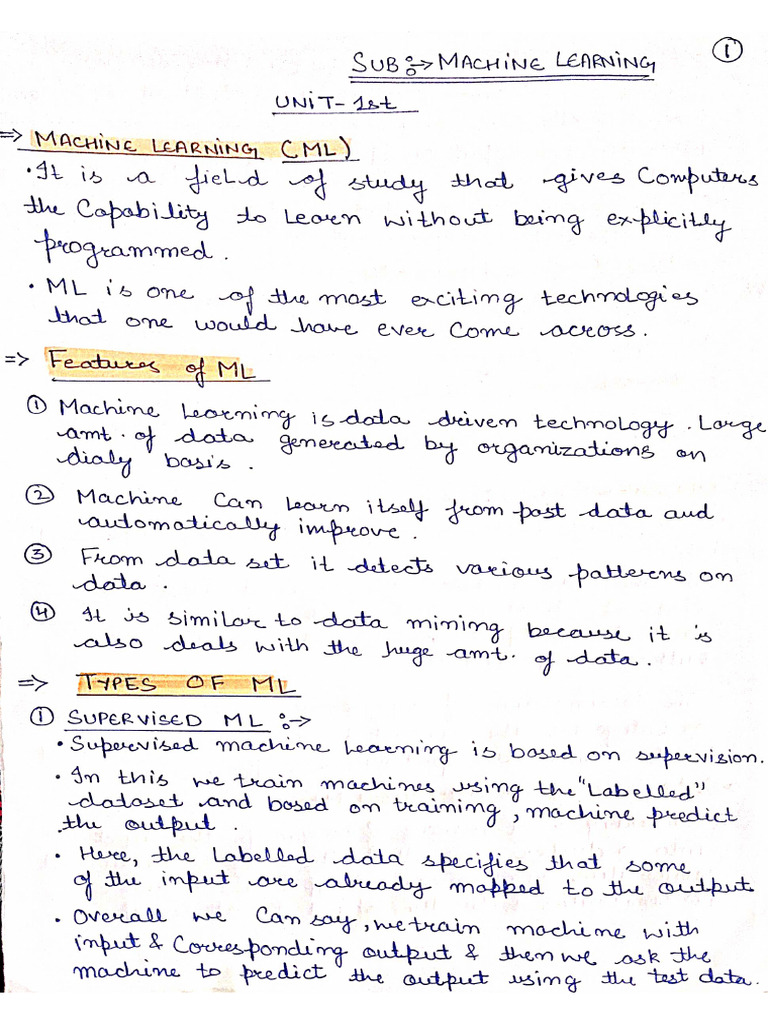 1
SUB :→ MACHINE LEARNING
UNIT-1st
⇒ MACHINE LEARNING (ML)
• It is a field of study that gives Computers
the Capability to Learn without being explicitly
programmed.
• ML is one of the most exciting technologies
that one would have ever Come across.
⇒ Features of ML
① Machine Learning is data driven technology. Large
amt. of data generated by organizations on
dialy basis.
② Machine Can Learn itself from past data and
automatically improve.
③ From data set it detects various patterns on
data.
④ It is similar to data mining because it is
also deals with the huge amt. of data.
⇒ TYPES OF ML
① SUPERVISED ML :→
• Supervised machine Learning is based on supervision.
• In this we train machines using the "Labelled"
dataset and based on training, machine predict
the output.
• Here, the Labelled data specifies that some
of the input are already mapped to the output
• Overall we Can say, we train machine with
input & Corresponding output & then we ask the
machine to predict the output using the test data.